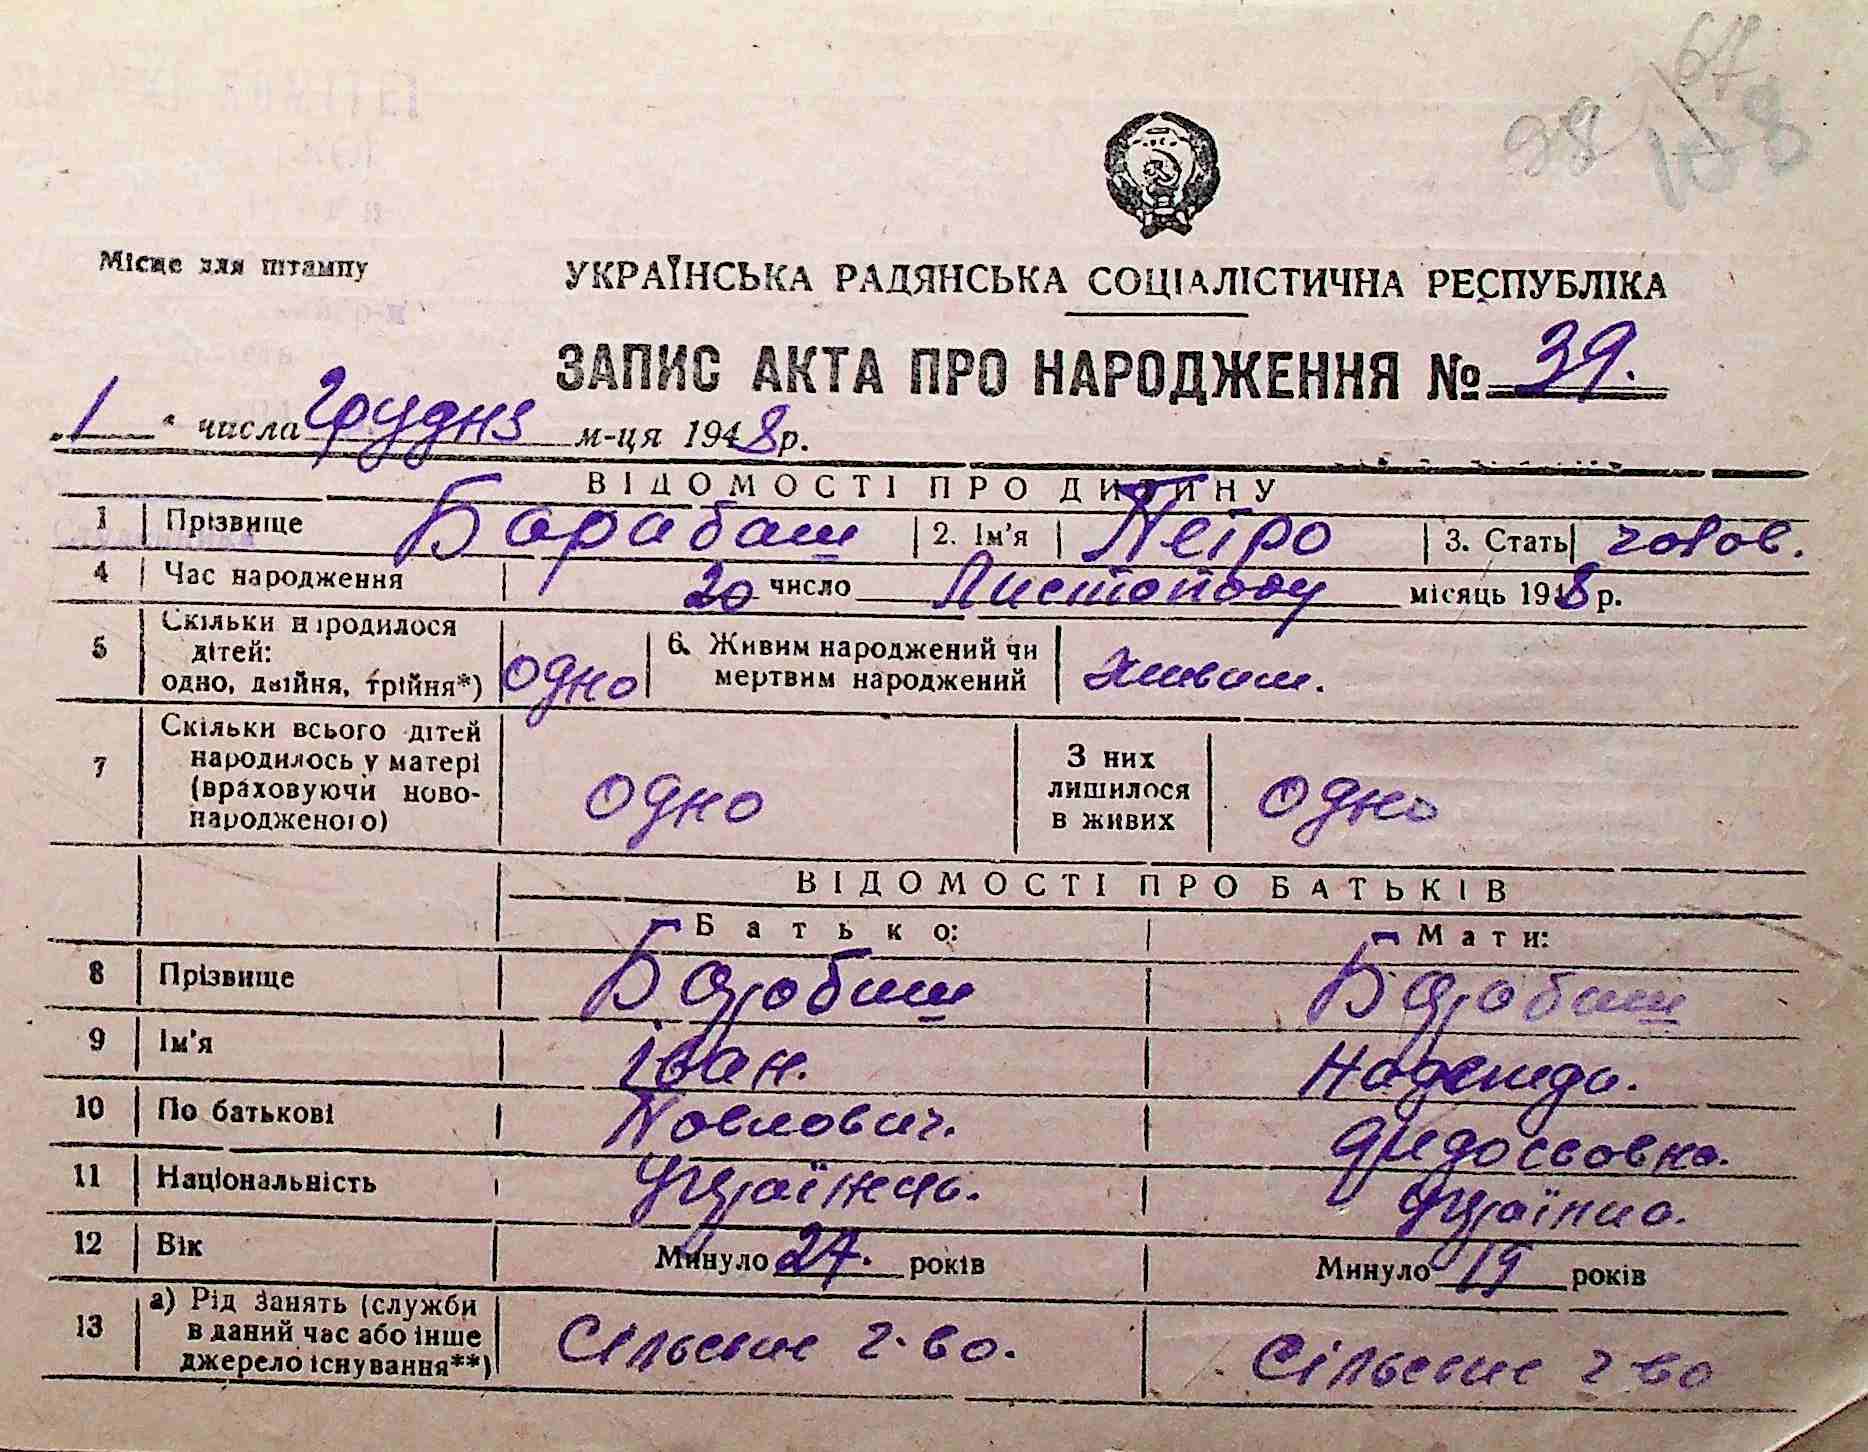 67
98 108
Місце для штампу
УКРАЇНСЬКА РАДЯНСЬКА СОЦІАЛІСТИЧНА РЕСПУБЛІКА
ЗАПИС АКТА ПРО НАРОДЖЕННЯ № 39.
„1“ числа Грудня м-ця 1948 р.
ВІДОМОСТІ ПРО ДИТИНУ
1 Прізвище Барабаш 2. Ім'я Петро 3. Стать чолов.
4 Час народження 20 число Листопаду місяць 1948 р.
5 Скільки народилося дітей: одно, двійня, трійня*) одно 6. Живим народжений чи мертвим народжений живим.
7 Скільки всього дітей народилось у матері (враховуючи новонародженого) одно З них лишилося в живих одно
ВІДОМОСТІ ПРО БАТЬКІВ
Батько: Мати:
8 Прізвище Барабаш Барабаш
9 Ім'я Іван. Надежда.
10 По батькові Павлович. Федосьовна.
11 Національність Українець. Українка.
12 Вік Минуло 27. років Минуло 19 років
13 а) Рід занять (служби в даний час або інше джерело існування**) Сільське г-во. Сільське г-во